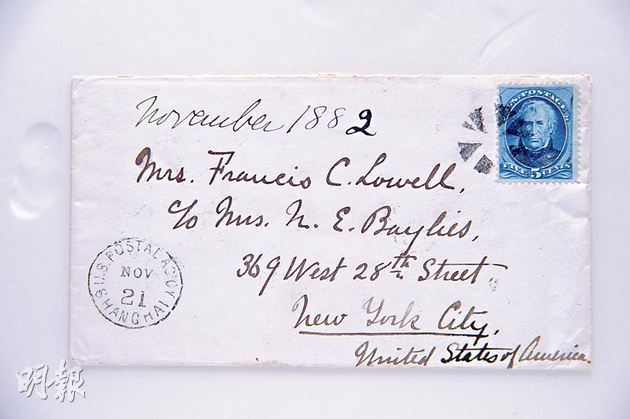 November 1882
U.S. POSTAGE
FIVE 5 CENTS
Mrs. Francis C. Lowell,
c/o Mrs. N. E. Baylies,
369 West 28th Street
New York City,
United States of America.
U.S. POSTAL AGCY
NOV
21
SHANGHAI
明報